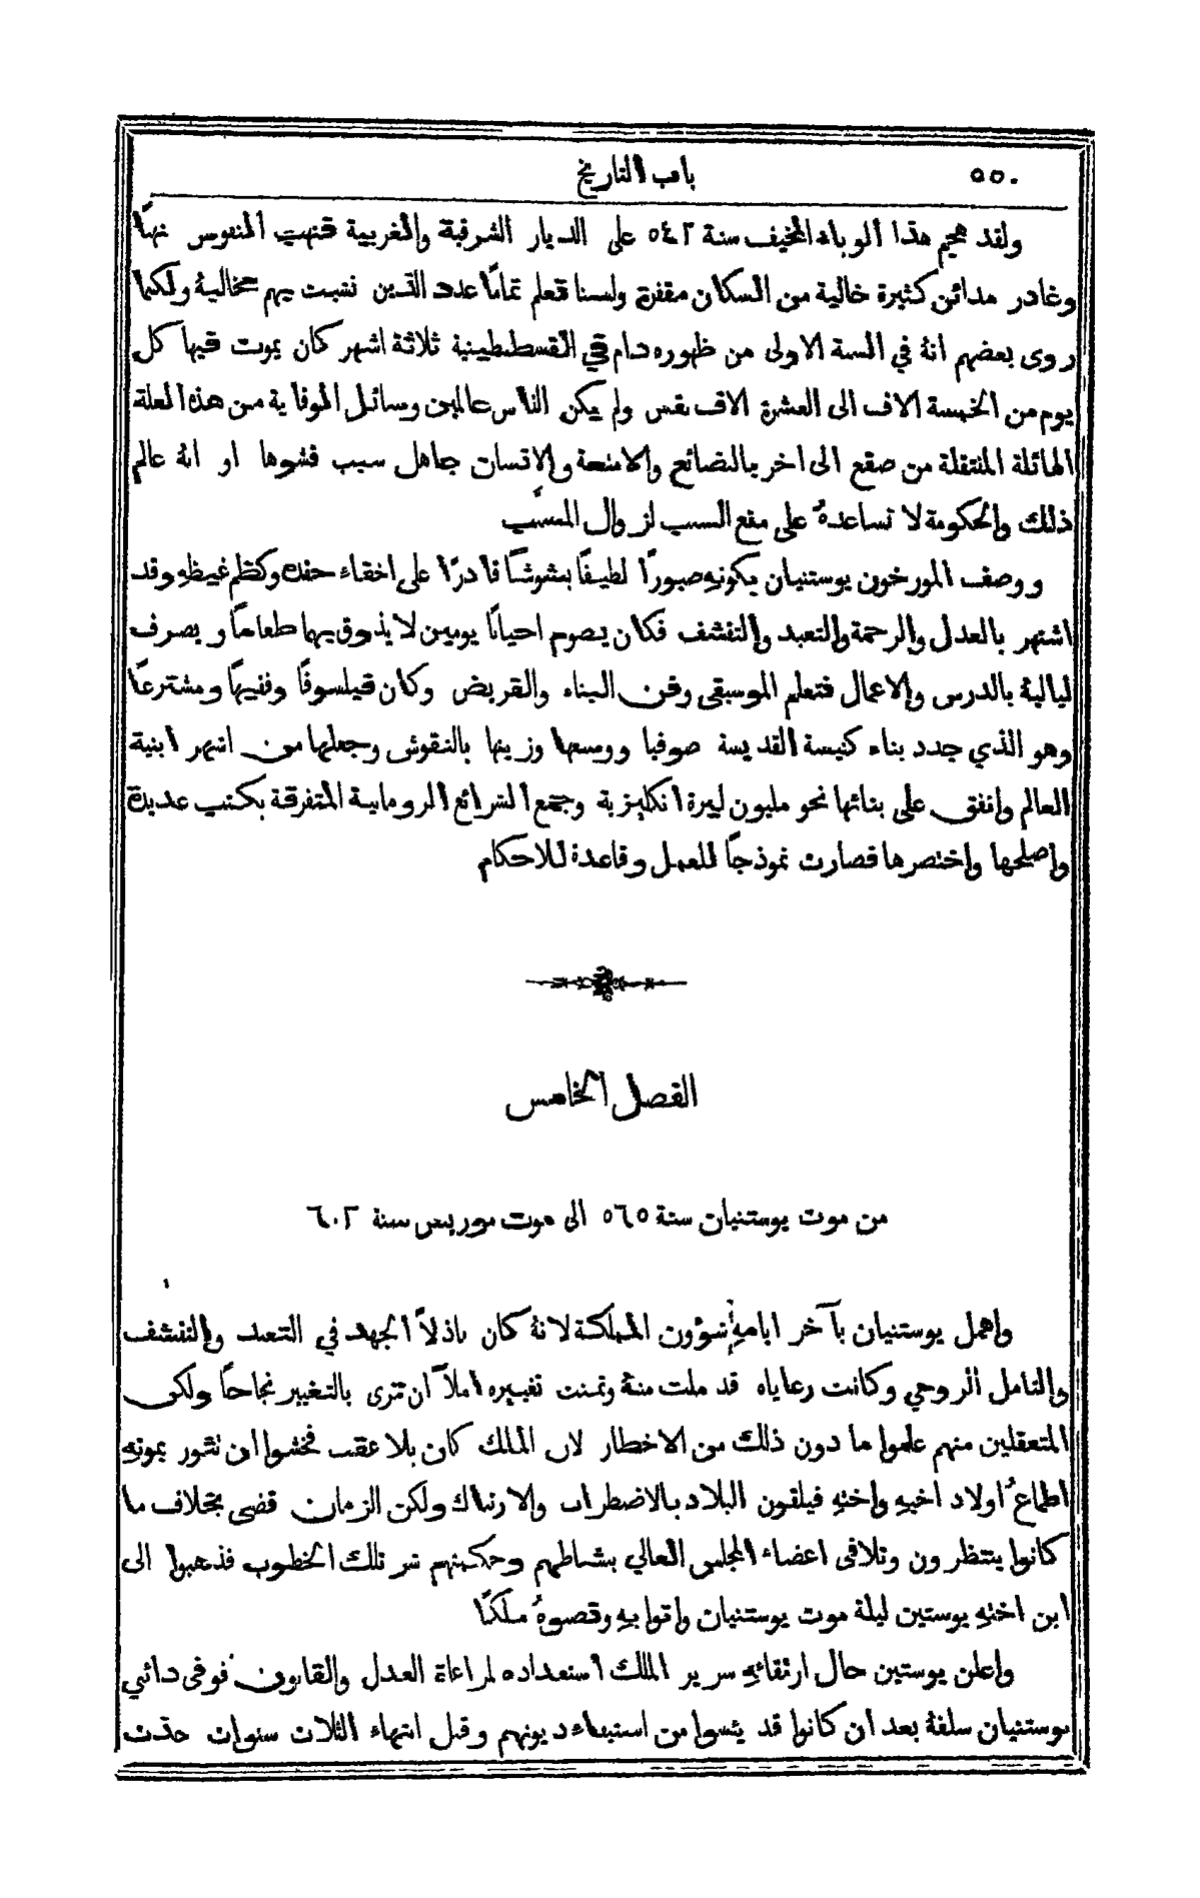 ٥٥٠
باب التاريخ
ولقد هجم هذا الوباء المخيف سنة ٥٤٢ على الديار الشرقية والمغربية فنهب النفوس نهبًا
وغادر مدائن كثيرة خالية من السكان مقفرة ولسنا نعلم تمامًا عدد الذين نشبت بهم مخالبهُ ولكنما
روى بعضهم انهُ في السنة الاولى من ظهوره دام في القسطنطينية ثلاثة اشهر كان يموت فيها كل
يوم من الخمسة الاف الى العشرة الاف نفس ولم يكن الناس عالمين وسائل الوقاية من هذه العلة
الهائلة المنتقلة من صقع الى اخر بالبضائع والامتعة والانسان جاهل سبب فشوها او انهُ عالم
ذلك والحكومة لا تساعدهُ على منع السبب لزوال المسبَّب
ووصف المورخون يوستنيان بكونهِ صبورًا لطيفًا بشوشًا قادرًا على اخفاء حقده وكظم غيظهِ وقد
اشتهر بالعدل والرحمة والتعبد والتقشف فكان يصوم احيانًا يومين لا يذوق بهما طعامًا ويصرف
لياليهُ بالدرس والاعمال فتعلم الموسيقى وفن البناء والقريض وكان فيلسوفًا وفقيهًا ومشترعًا
وهو الذي جدد بناء كنيسة القديسة صوفيا ووسعها وزينها بالنقوش وجعلها من اشهر ابنية
العالم وانفق على بنائها نحو مليون ليرة انكليزية وجمع الشرائع الرومانية المتفرقة بكتب عديدة
واصلحها واختصرها فصارت نموذجًا للعمل وقاعدة للاحكام
الفصل الخامس
من موت يوستنيان سنة ٥٦٥ الى موت موريس سنة ٦٠٢
واهمل يوستنيان بآخر ايامهِ شؤون المملكة لانهُ كان باذلاً الجهد في التعبد والتقشف
والتامل الروحي وكانت رعاياه قد ملت منهُ وتمنت تغييره املاً ان ترى بالتغيير نجاحًا ولكن
المتعقلين منهم علموا ما دون ذلك من الاخطار لان الملك كان بلا عقب فخشوا ان تثور بموتهِ
اطماعُ اولاد اخيهِ واختهِ فيلقون البلاد بالاضطراب والارتباك ولكن الزمان قضى بخلاف ما
كانوا ينتظرون وتلافى اعضاء المجلس العالي بنشاطهم وحكمتهم شر تلك الخطوب فذهبوا الى
ابن اختهِ يوستين ليلة موت يوستنيان واتوا بهِ ونصبوهُ ملكًا
واعلن يوستين حال ارتقائهِ سرير الملك استعداده لمراعاة العدل والقانون فوفى دائني
يوستنيان سلفهُ بعد ان كانوا قد يئسوا من استيفاء ديونهم وقبل انتهاء الثلاث سنوات حدثت